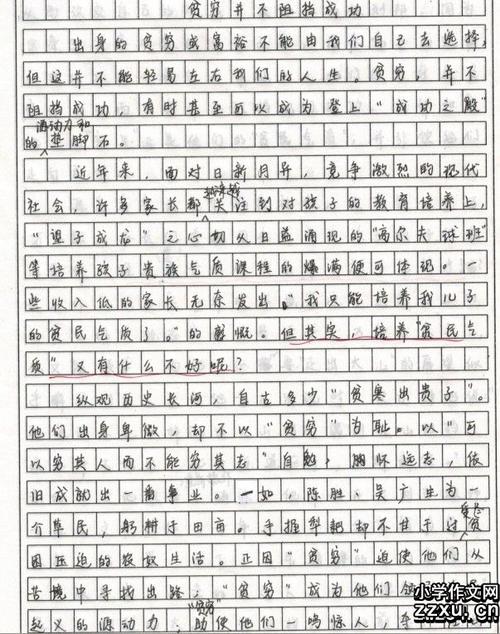 贫穷并不阻挡成功
出身的贫穷或富裕不能由我们自己去选择，
但这并不能轻易左右我们的人生。贫穷，并不
阻挡成功，有时甚至可以成为登上“成功之殿”
源动力和
的垫脚石。
近年来，面对日新月异，竞争激烈的现代
越来越
社会，许多家长都关注到对孩子的教育培养上，
“望子成龙”之心切从日益涌现的“高尔夫球班”
等培养孩子贵族气质课程的爆满便可体现。一
些收入低的家长无奈发出“我只能培养我儿子
的贫民气质了。”的感慨。但其实，培养“贫民气
质”又有什么不好呢？
纵观历史长河，自古多少“贫寒出贵子”。
他们出身卑微，却不以“贫穷”为耻。以“可
以穷其人而不能穷其志”自勉，胸怀远志，依
旧成就出一番事业。一如，陈胜、吴广生为一
介草民，躬耕于田亩。手握犁耙却不甘于过
困压迫的农奴生活。正因“贫穷”迫使他们从
苦境中寻找出路，“贫穷”成为他们
“贫穷”
起义的源动力，助使他们一鸣惊人，
小学作文网
zzxu.cn